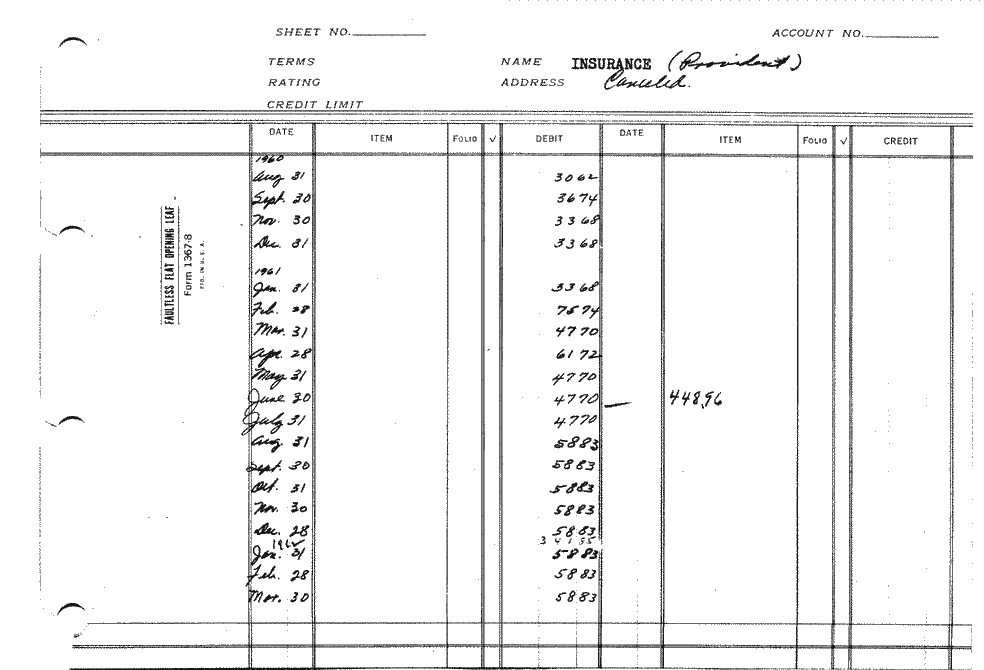 SHEET NO.
ACCOUNT NO.
TERMS
NAME INSURANCE (Provident)
RATING
ADDRESS Canceled.
CREDIT LIMIT
DATE ITEM FOLIO √ DEBIT DATE ITEM FOLIO √ CREDIT
1960
Aug 31 3062
Sept. 30 3674
Nov. 30 3368
Dec. 31 3368
1961
Jan. 31 3368
Feb. 28 7574
Mar. 31 4770
Apr. 28 6172
May 31 4770
June 30 4770 448.96
July 31 4770
Aug. 31 5883
Sept. 30 5883
Oct. 31 5883
Nov. 30 5883
Dec. 28 5883
1962
Jan. 31 5883
Feb. 28 5883
Mar. 30 5883
FAULTLESS FLAT OPENING LEAF
Form 1367-8